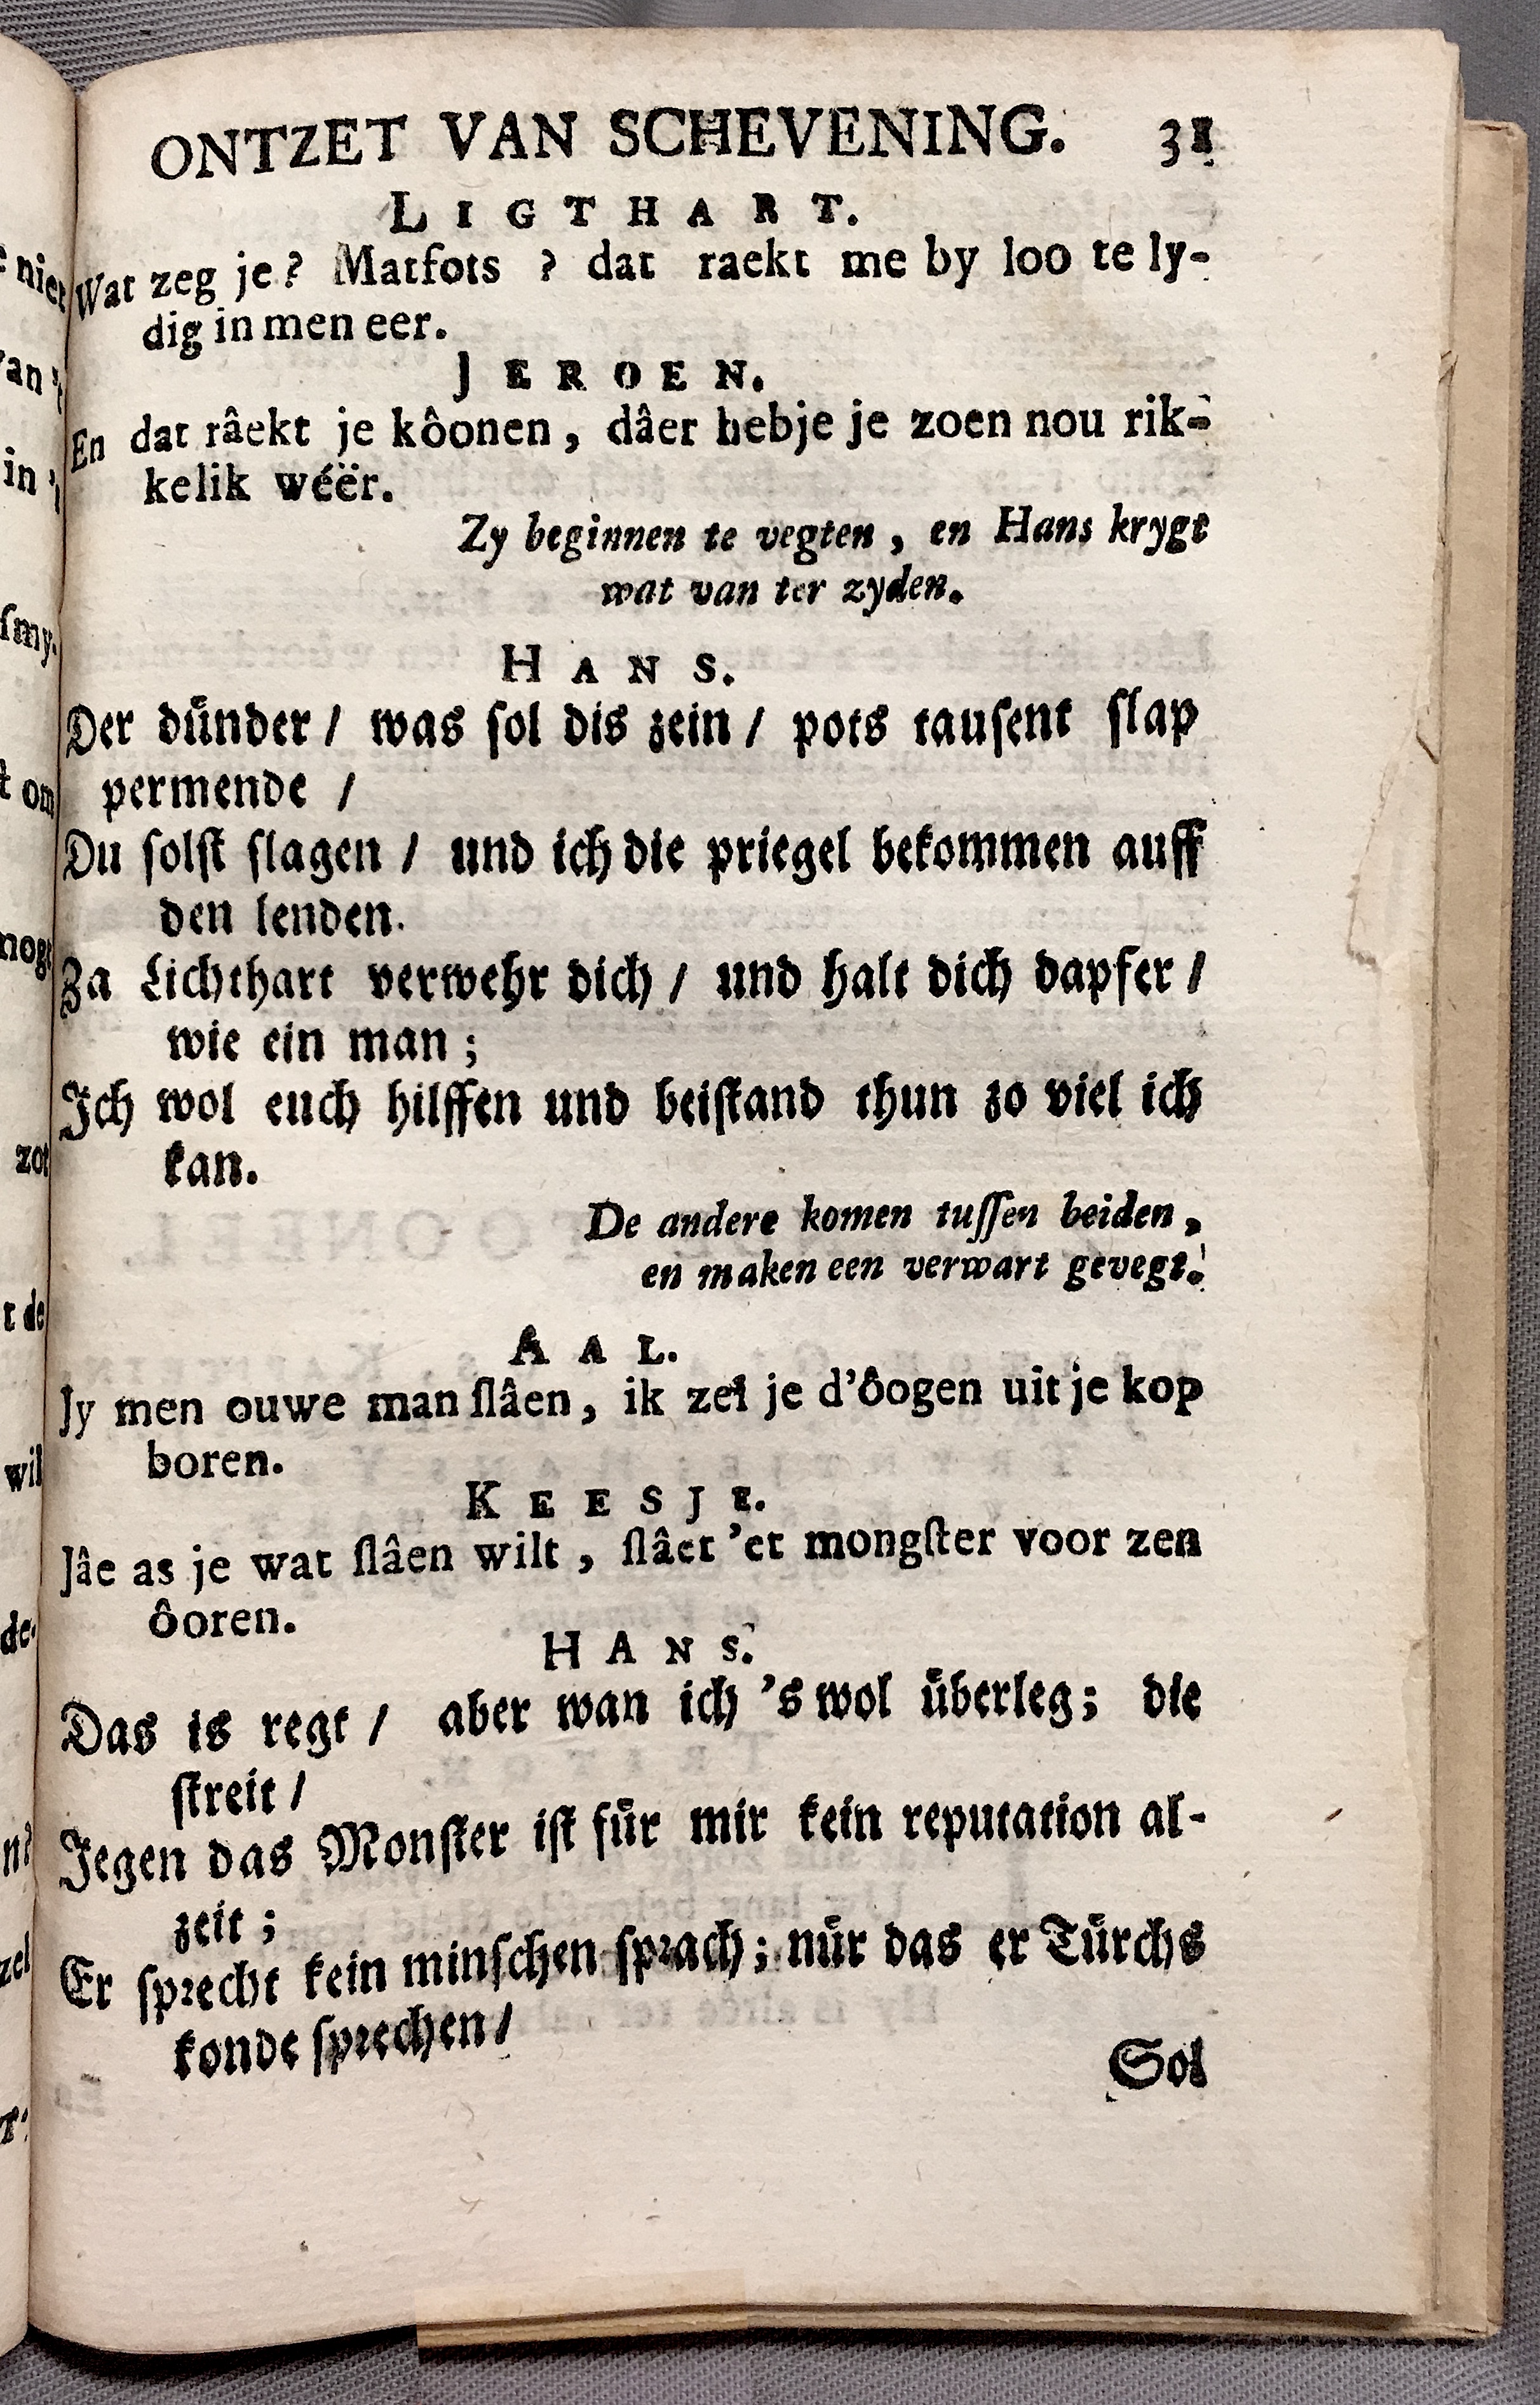 ONTZET VAN SCHEVENING. 31
LIGTHART.
Wat zeg je? Matfots ? dat raekt me by loo te ly-
dig in men eer.
JEROEN.
En dat râekt je kôonen, dâer hebje je zoen nou rik-
kelik wéër.
Zy beginnen te vegten, en Hans krygt
wat van ter zyden.
HANS.
Der důnder / was sol dis zein / pots tausent slap
permende /
Du solst slagen / und ich die priegel bekommen auff
den lenden.
Za Lichthart verwehr dich / und halt dich dapfer /
wie ein man ;
Ich wol euch hilffen und beistand thun zo viel ich
kan.
De andere komen tussen beiden,
en maken een verwart gevegt.
AAL.
Jy men ouwe man slâen, ik zel je d'ôogen uit je kop
boren.
KEESJE.
Jâe as je wat slâen wilt, slâet 'et mongster voor zen
ôoren.
HANS.
Das is regt / aber wan ich 's wol ůberleg; die
streit /
Jegen das Monster ist fůr mir kein reputation al-
zeit ;
Er sprecht kein minschen sprach; nůr das er Tůrchs
konde sprechen /
Sol